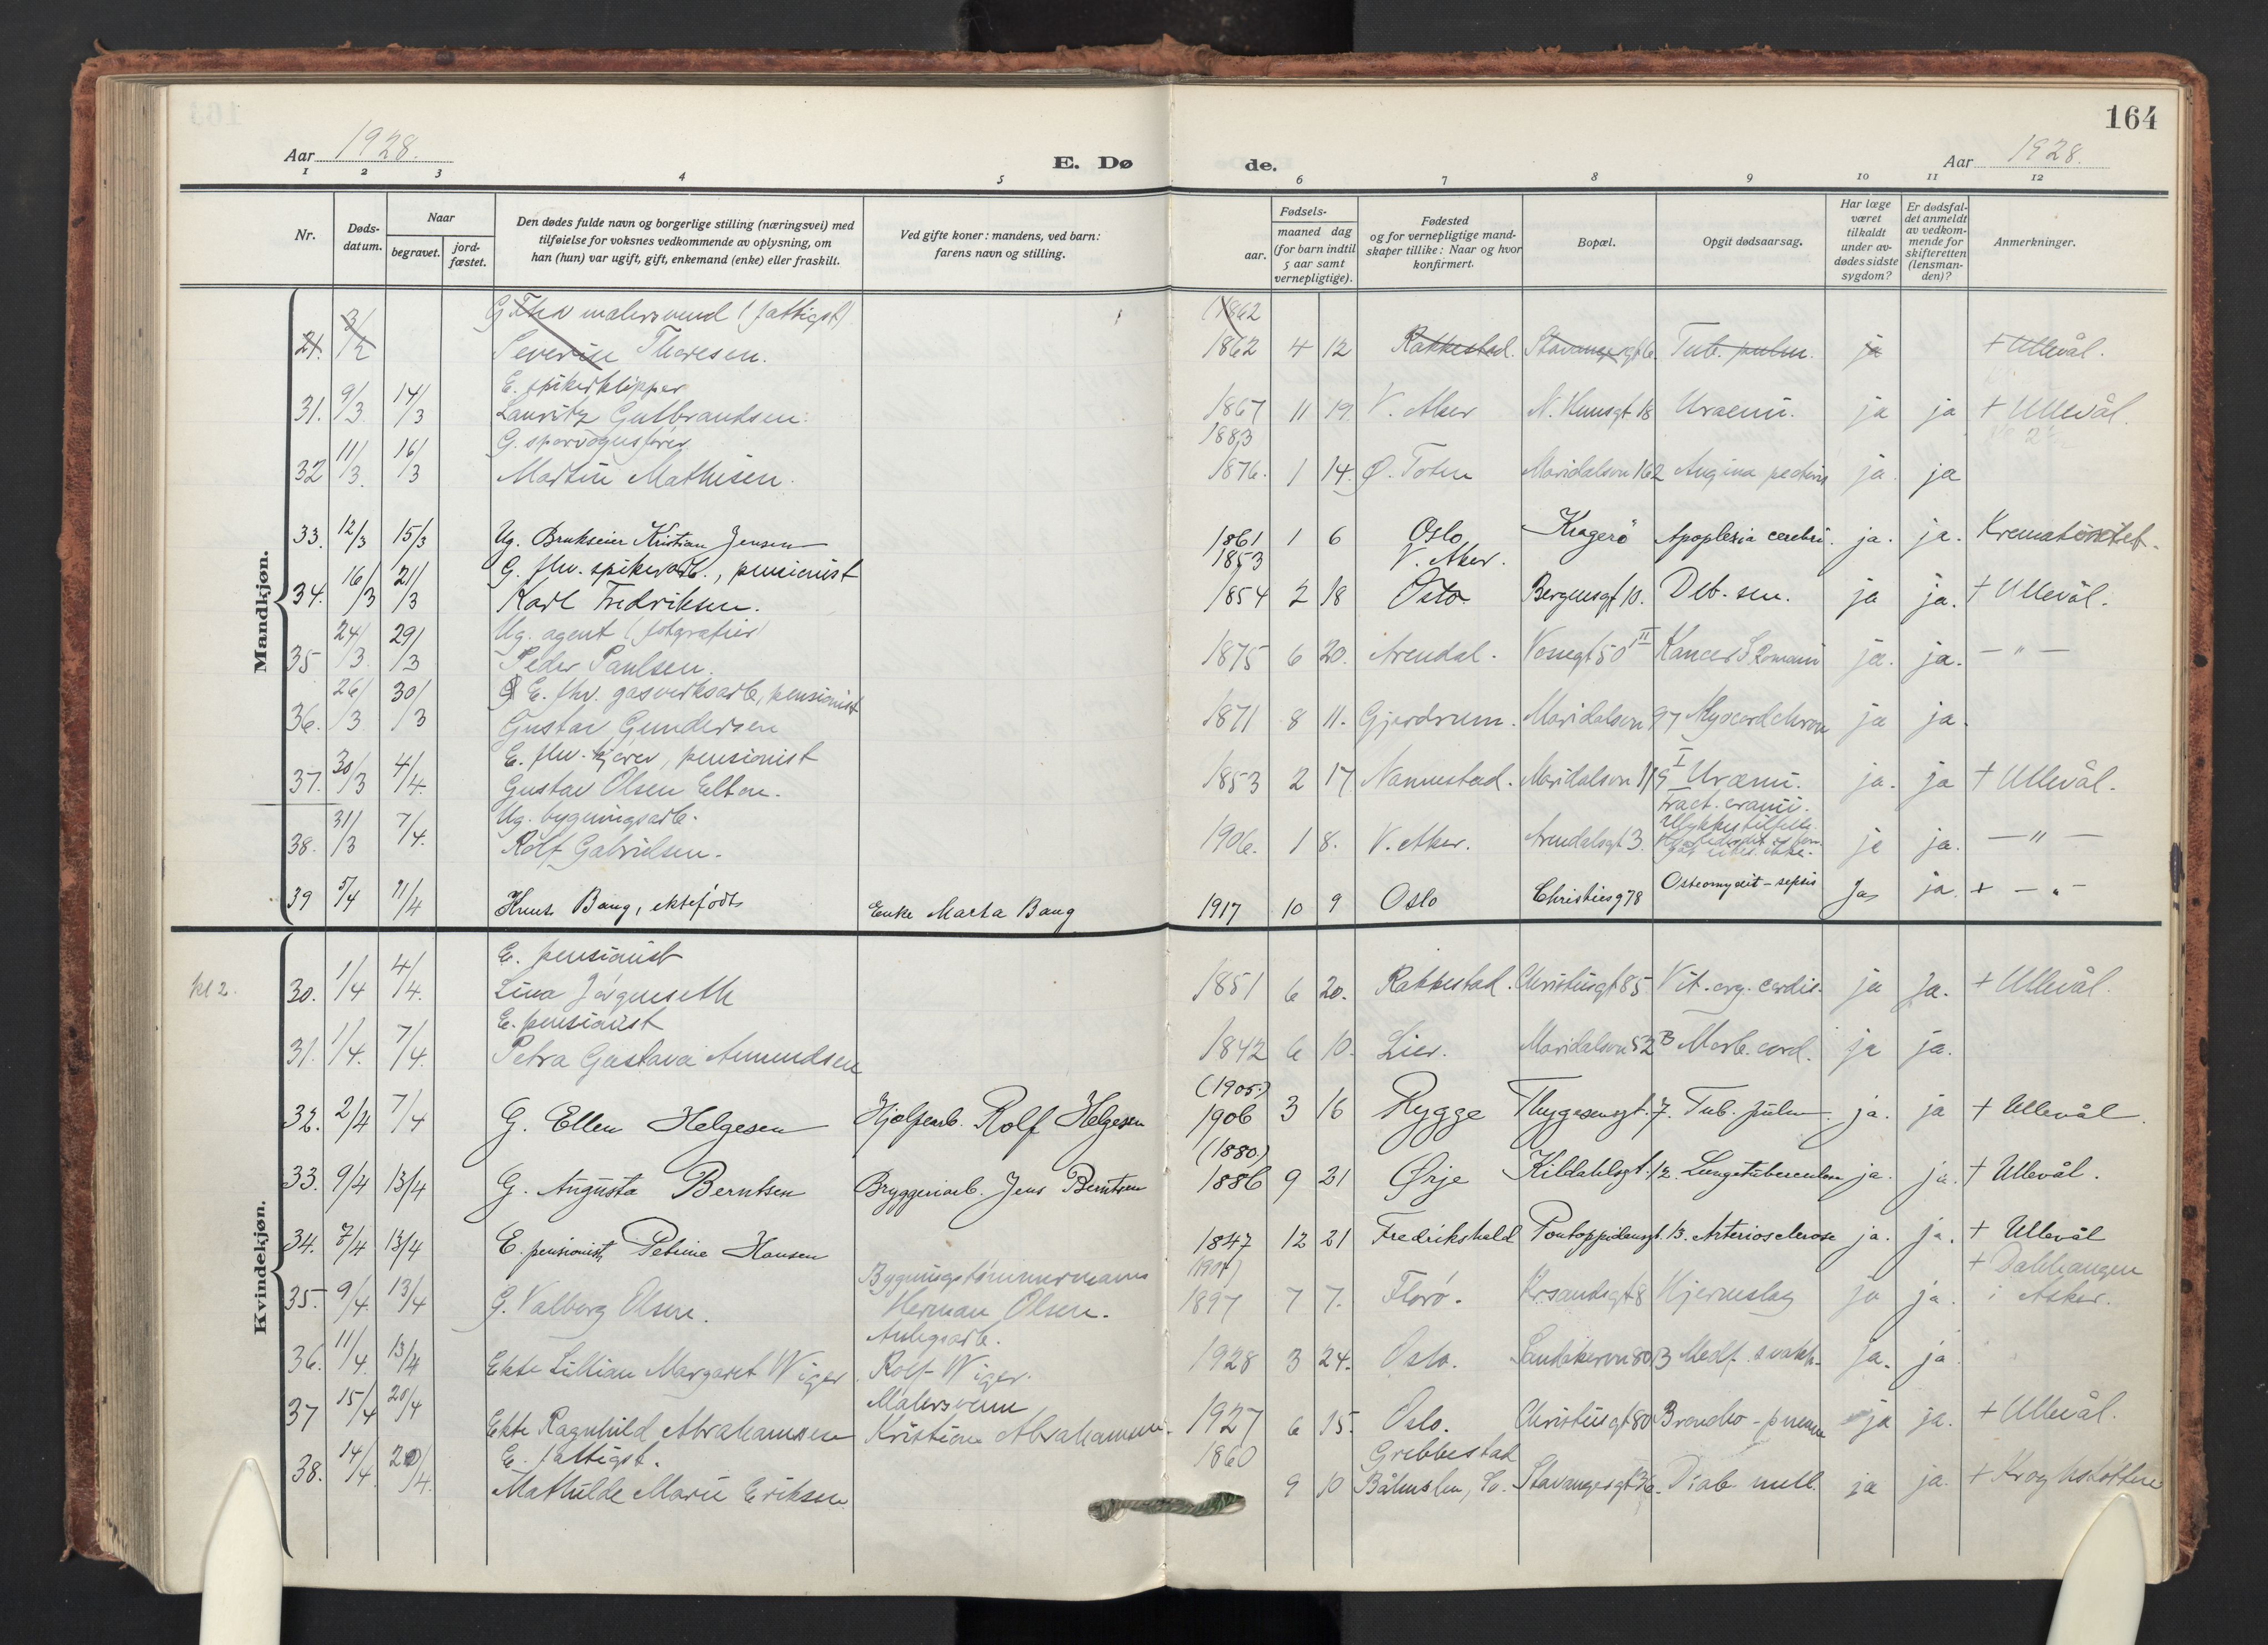 164
Aar 1928.
E. Dø
de.
Aar 1928.
1 2 3 4 5 6 7 8 9 10 11 12
Nr.
Døds-
datum.
Naar
begravet.
jord-
fæstet.
Den dødes fulde navn og borgerlige stilling (næringsvei) med
tilføielse for voksnes vedkommende av oplysning, om
han (hun) var ugift, gift, enkemand (enke) eller fraskilt.
Ved gifte koner: mandens, ved barn:
farens navn og stilling.
Fødsels-
aar.
maaned dag
(for barn indtil
5 aar samt
vernepligtige).
Fødested
og for vernepligtige mand-
skaper tillike: Naar og hvor
konfirmert.
Bopæl.
Opgit dødsaarsag.
Har læge
været
tilkaldt
under av-
dødes sidste
sygdom?
Er dødsfal-
det anmeldt
av vedkom-
mende for
skifteretten
(lensman-
den)?
Anmerkninger.
Mandkjøn.
G. malersvend (fattigst) 1862
21. 3/2 Severin Thoresen. 1862 4 12 Rakkestad. Stavangergt 6. Tub. pulm. ja + Ullevål.
E. spikerklipper
31. 9/3 14/3 Lauritz Gulbrandsen. 1867 11 19. V. Aker N. Hunsgt 18 Uraemi. ja ja + Ullevål.
G. sporvognsfører 1883
32 11/3. 16/3 Martin Mathisen. 1876. 1 14. Ø. Toten Maridalsvn 162 Angina pectoris ja. ja
33. 12/3 15/3 Ug. Brukseier Kristian Jensen 1861 1 6 Oslo Kragerö Apoplexia cerebri. ja. ja. Krematoriet.
G. fhv. spikerarb., pensionist 1853 V. Aker.
34. 16/3 21/3 Karl Fredriksen. 1854 2 18 Oslo Bergensgt 10. Deb. sen. ja ja. + Ullevål.
Ug. agent (fotografier)
35 24/3. 29/3 Peder Paulsen. 1875 6 20. Arendal. Vossegt 50 II Kancer S Romani ja. ja. — " —
E. fhv. gasverksarb., pensionist
36. 26/3 30/3 Gustav Gundersen 1871 8 11. Gjerdrum. Maridalsvn 97 Myocard chron ja ja.
E. fhv. kjører, pensionist
37. 30/3 4/4. Gustav Olsen Elton. 1853 2 17 Nannestad. Maridalsvn 119 I Uræmi. ja. ja + Ullevål.
Ug. bygningsarb. Fract. cranii.
Ulykkestilfelle
38. 31/3 7/4. Rolf Gabrielsen. 1906. 1 8. V. Aker. Arendalsgt 3. ja ja. — " —
39 5/4 11/4 Knut Bang, ektefödt Enke Marta Bang 1917 10 9 Oslo Christiesg 78 Osteomyelit - sepsis Ja ja. + — " —
Kvindekjøn.
E. pensionist
kl 2. 30. 1/4 4/4. Lina Jørgenseth 1851 6 20. Rakkestad. Christiesgt 85 Vit. org. cordis. ja Ja. + Ullevål.
E. pensionist
31. 1/4. 7/4. Petra Gustava Amundsen 1842 6 10. Lier. Maridalsvn 52 B Morb. cord. ja ja.
(1905.)
32. 2/4 7/4 G. Ellen Helgesen Hjælpearb. Rolf Helgesen 1906 3 16 Rygge Thygesensgt. 7. Tub. pulm. ja. ja + Ullevål.
(1880.)
33. 9/4 13/4 G. Augusta Berntsen Bryggeriarb. Jens Berntsen 1886 9 21 Ørje Kildahlsgt. 12. Lungetuberculose ja. ja. + Ullevål.
34. 7/4 13/4 E. pensionist Petrine Hansen 1847 12 21 Fredrikshald Pontoppidansgt. 13. Arteriosclerose ja. ja. + Ullevål
Bygningstømmermann + Dalhaugen
35. 9/4. 13/4 G. Valborg Olsen. Herman Olsen. 1897 7 7. Florö. Krsandsgt 8 Hjerneslag ja ja. i Asker.
Anlegsarb.
36. 11/4. 13/4 Ekte Lillian Margaret Wiger Rolf Wiger. 1928 3 24. Oslo. Sandakervn 80 B Medf. svakh. ja. ja
Malersvenn
37 15/4 20/4 Ekte Ragnhild Abrahamsen Kristian Abrahamsen. 1927 6 15. Oslo. Christiesgt 80 Broncho-pneum ja ja. + Ullevål.
E. fattigst. 1860 Grebbestad
38. 14/4 20/4. Mathilde Marie Eriksen 9 10 Båhuslen, Sv. Stavangergt 36. Diab. mell. ja ja. +